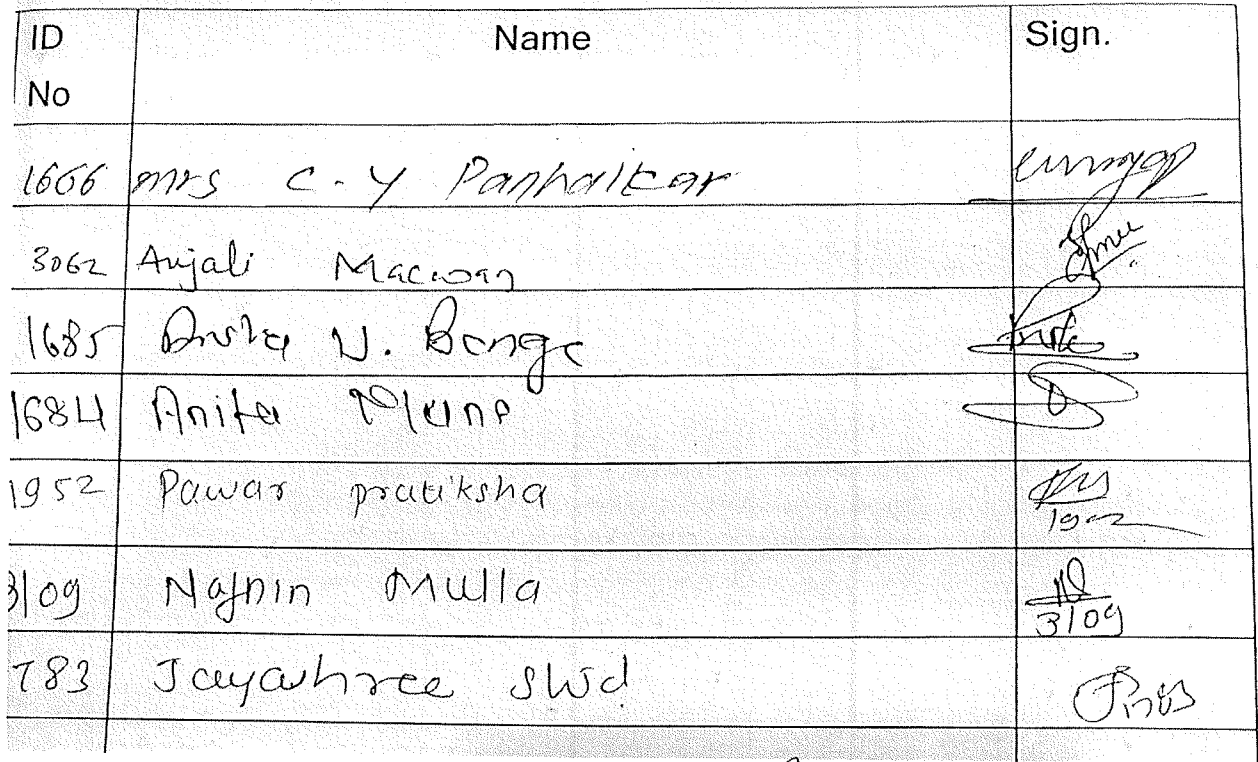 ID No Name Sign.
1666 Mrs C. Y Panhalkar
3062 Anjali Macwan
1685 V. Bange
1684 Anita Mane
1952 Pawar pratiksha 1952
3109 Najnin Mulla 3109
783 Jayashree